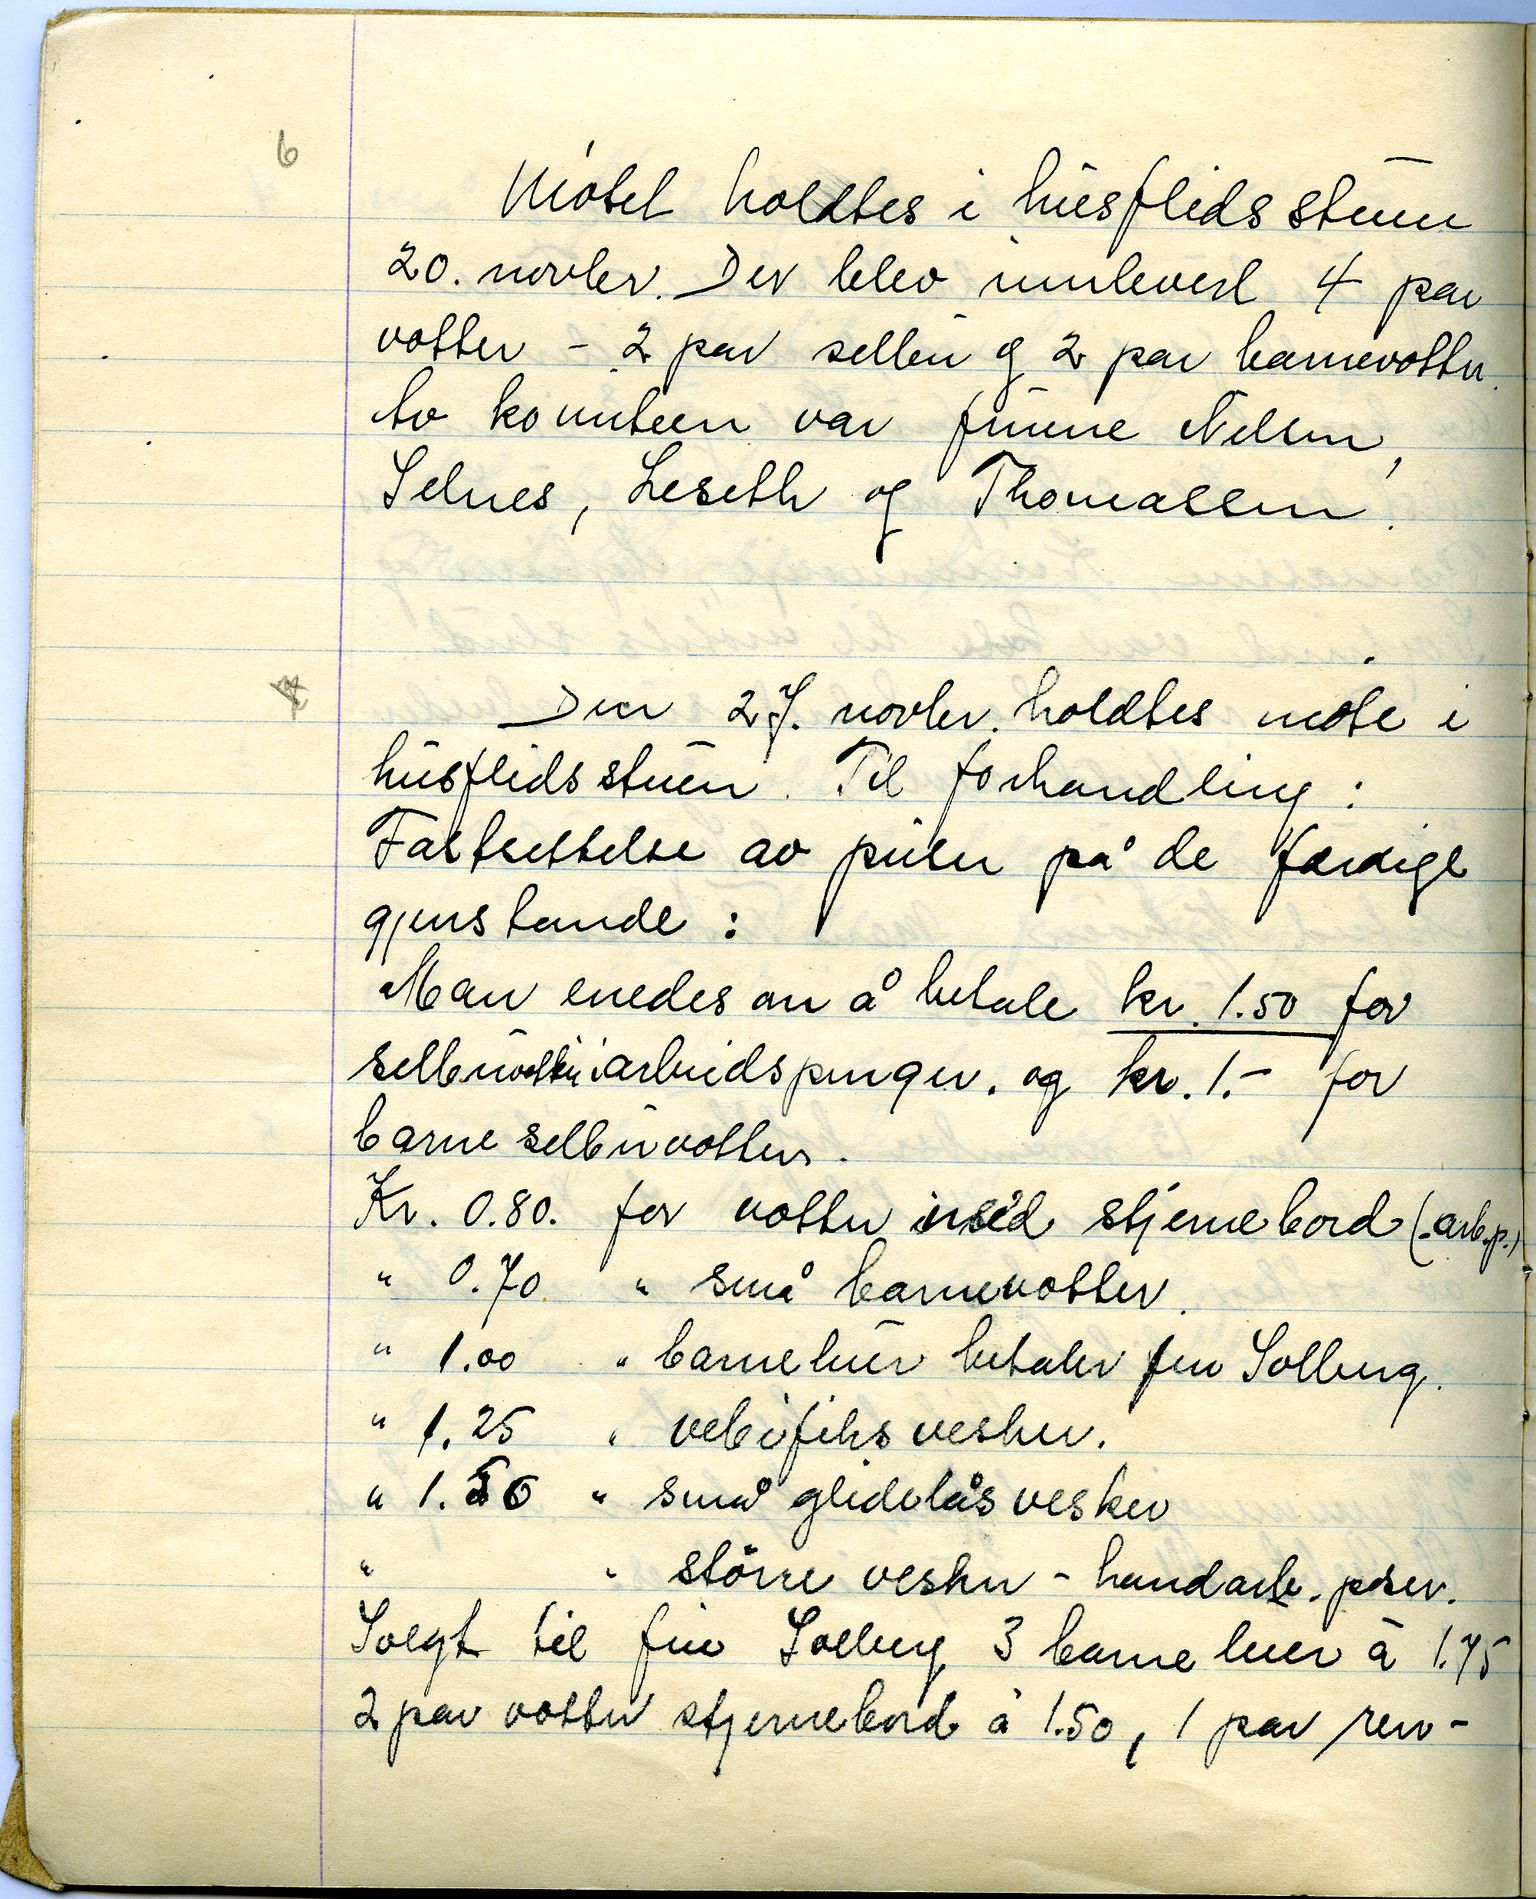 6
Møtet holdtes i husflidsstuen
20. novbr. Der blev innlevert 4 par
votter - 2 par selbu og 2 par barnevotter.
Av komiteen var fruene Nelsen,
Selnes, Leseth og Thomassen.
7
Den 27. novbr. holdtes møte i
husflidsstuen. Til forhandling :
Fastsettelse av priser på de færdige
gjenstande :
Man enedes om å betale kr. 1.50 for
selbuvotter i arbeidspenger. og kr. 1.- for
barneselbuvotter.
Kr. 0.80. for votter med stjernebord (.arb.p.)
" 0.70 " små barnevotter.
" 1.00 " barneluer betaler fru Solberg.
" 1.25 " vebifiksvesker.
" 1.50 " små glidelåsvesker
" " større vesker - handarb. poser.
Solgt til fru Solberg 3 barneluer à 1.75
2 par votter stjernebord à 1.50, 1 par ren-